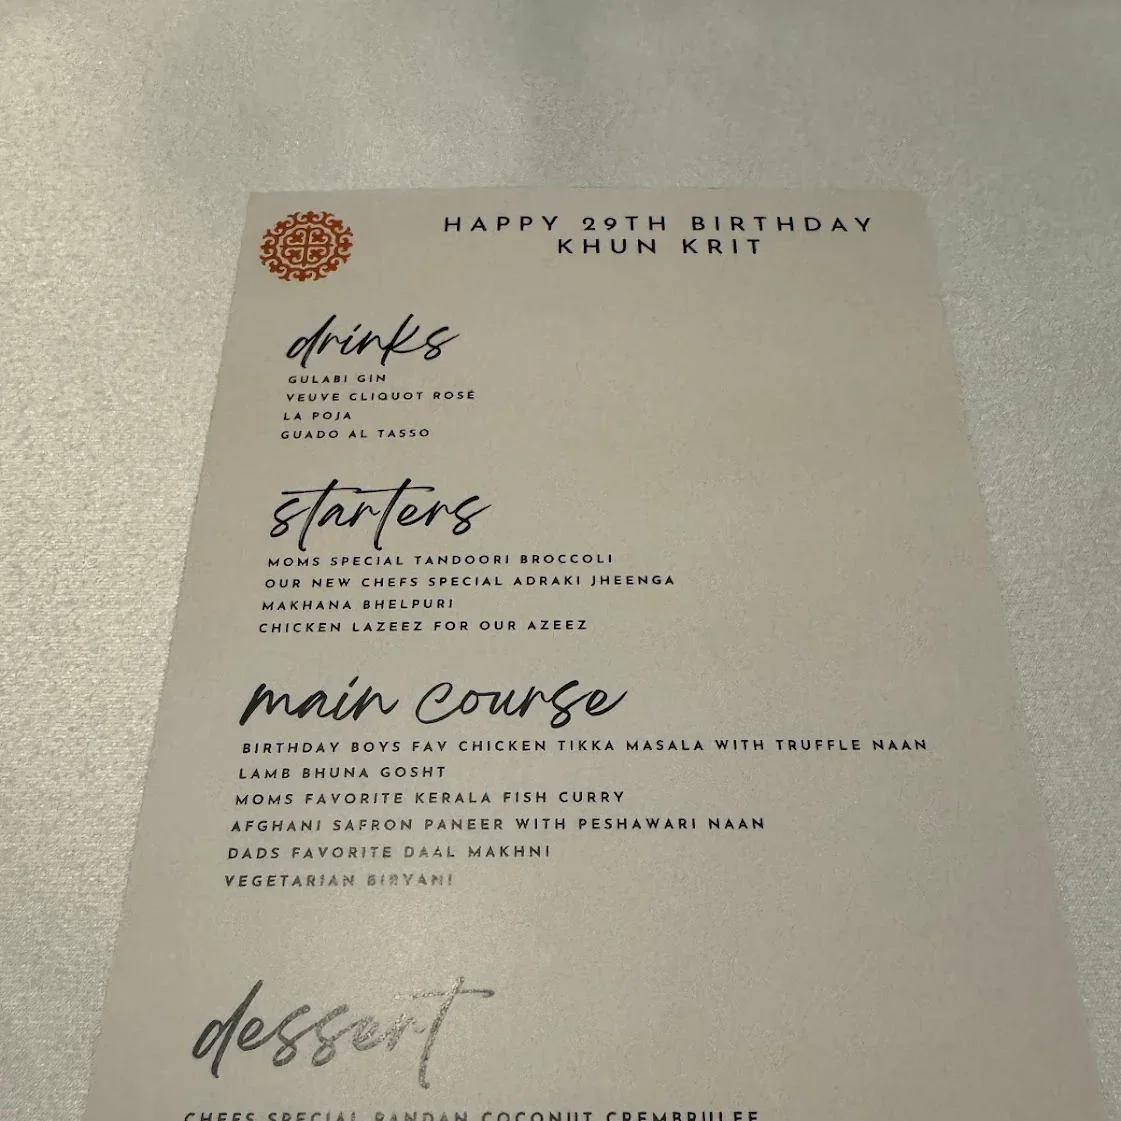 HAPPY 29TH BIRTHDAY
KHUN KRIT
drinks
GULABI GIN
VEUVE CLIQUOT ROSÉ
LA POJA
GUADO AL TASSO
starters
MOMS SPECIAL TANDOORI BROCCOLI
OUR NEW CHEFS SPECIAL ADRAKI JHEENGA
MAKHANA BHELPURI
CHICKEN LAZEEZ FOR OUR AZEEZ
main course
BIRTHDAY BOYS FAV CHICKEN TIKKA MASALA WITH TRUFFLE NAAN
LAMB BHUNA GOSHT
MOMS FAVORITE KERALA FISH CURRY
AFGHANI SAFRON PANEER WITH PESHAWARI NAAN
DADS FAVORITE DAAL MAKHNI
VEGETARIAN BIRYANI
dessert
CHEFS SPECIAL PANDAN COCONUT CREMBRULEE